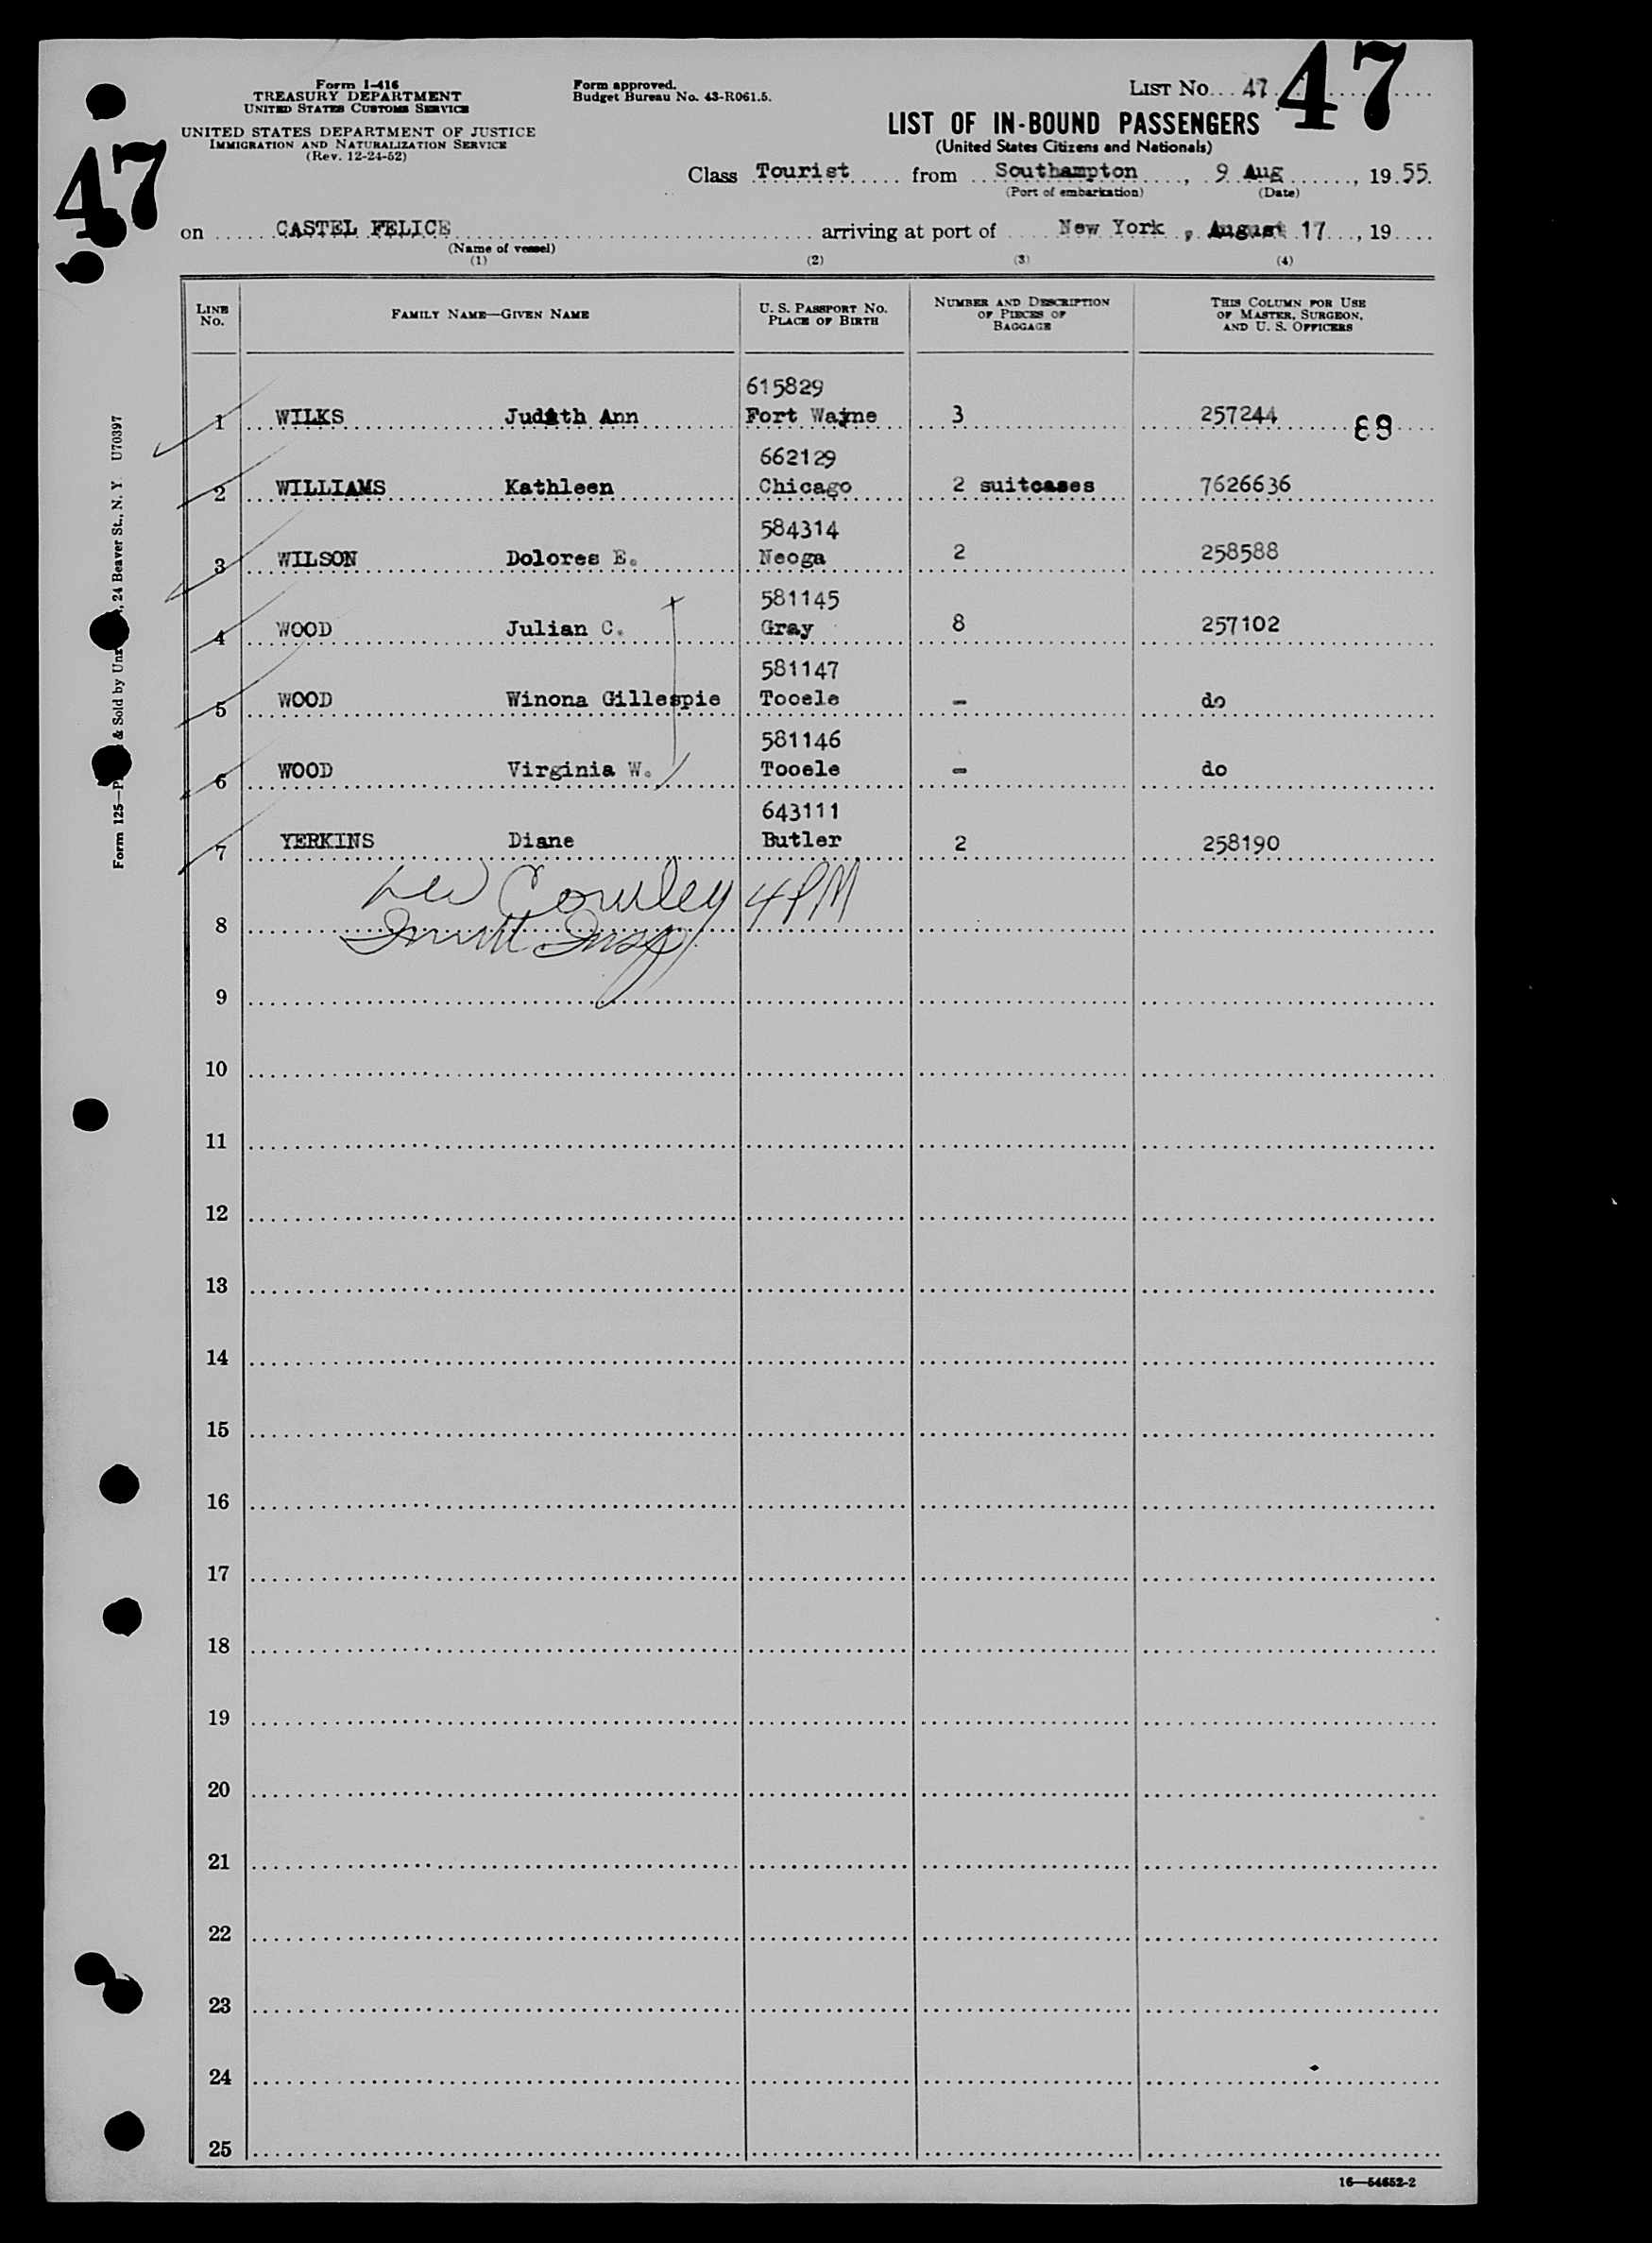 47
Form I-416
TREASURY DEPARTMENT
UNITED STATES CUSTOMS SERVICE
UNITED STATES DEPARTMENT OF JUSTICE
IMMIGRATION AND NATURALIZATION SERVICE
(Rev. 12-24-52)
Form approved.
Budget Bureau No. 43-R061.5.
LIST No. 47
47
LIST OF IN-BOUND PASSENGERS
(United States Citizens and Nationals)
Class Tourist from Southampton, 9 Aug, 1955.
(Port of embarkation) (Date)
on CASTEL FELICE arriving at port of New York, August 17, 19
(Name of vessel)
(1) (2) (3) (4)
LINE No. FAMILY NAME—GIVEN NAME U. S. PASSPORT NO. PLACE OF BIRTH NUMBER AND DESCRIPTION OF PIECES OF BAGGAGE THIS COLUMN FOR USE OF MASTER, SURGEON, AND U. S. OFFICERS
615829
1 WILKS Judith Ann Fort Wayne 3 257244 89
662129
2 WILLIAMS Kathleen Chicago 2 suitcases 7626636
584314
3 WILSON Dolores E. Neoga 2 258588
581145
4 WOOD Julian C. Gray 8 257102
581147
5 WOOD Winona Gillespie Tooele - do
581146
6 WOOD Virginia W. Tooele - do
643111
7 YERKINS Diane Butler 2 258190
Cowley 4 PM
8 Immt. Insp.
9
10
11
12
13
14
15
16
17
18
19
20
21
22
23
24
25
16—54652-2
Form 125— & Sold by , 24 Beaver St., N. Y. U70397